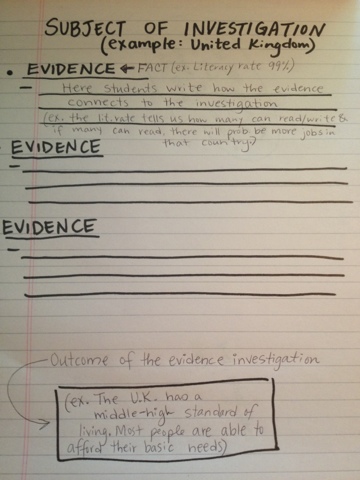 SUBJECT OF INVESTIGATION
(example: United Kingdom)
• EVIDENCE ← FACT (ex. Literacy rate 99%)
– Here students write how the evidence
connects to the investigation
(ex. the lit. rate tells us how many can read/write &
if many can read, there will prob. be more jobs in
that country)
EVIDENCE
–
EVIDENCE
–
Outcome of the evidence investigation
(ex. The U.K. has a
middle-high standard of
living. Most people are able to
afford their basic needs)